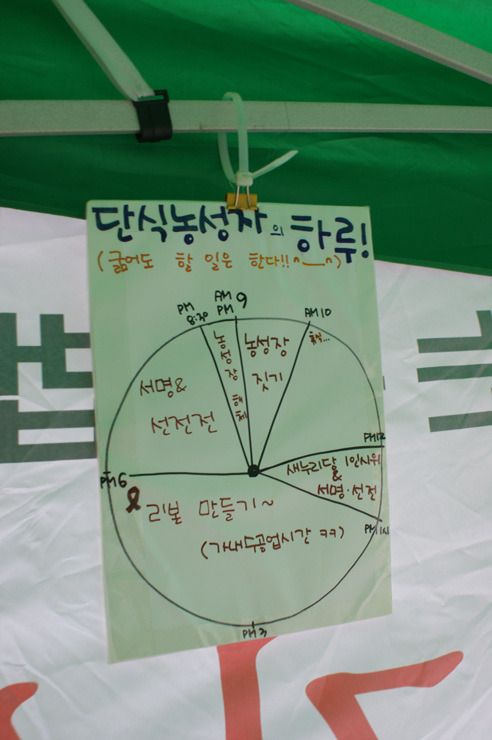 단식농성자의 하루!
(굶어도 할 일은 한다!! ^__^)
PM 8:30
AM
PM 9
AM 10
농성장 해체
농성장
짓기
서명&
선전전
PM 12
새누리당 1인시위
&
서명·선전
PM 6
리본 만들기~
(가내수공업시간 ㅋㅋ)
PM 3